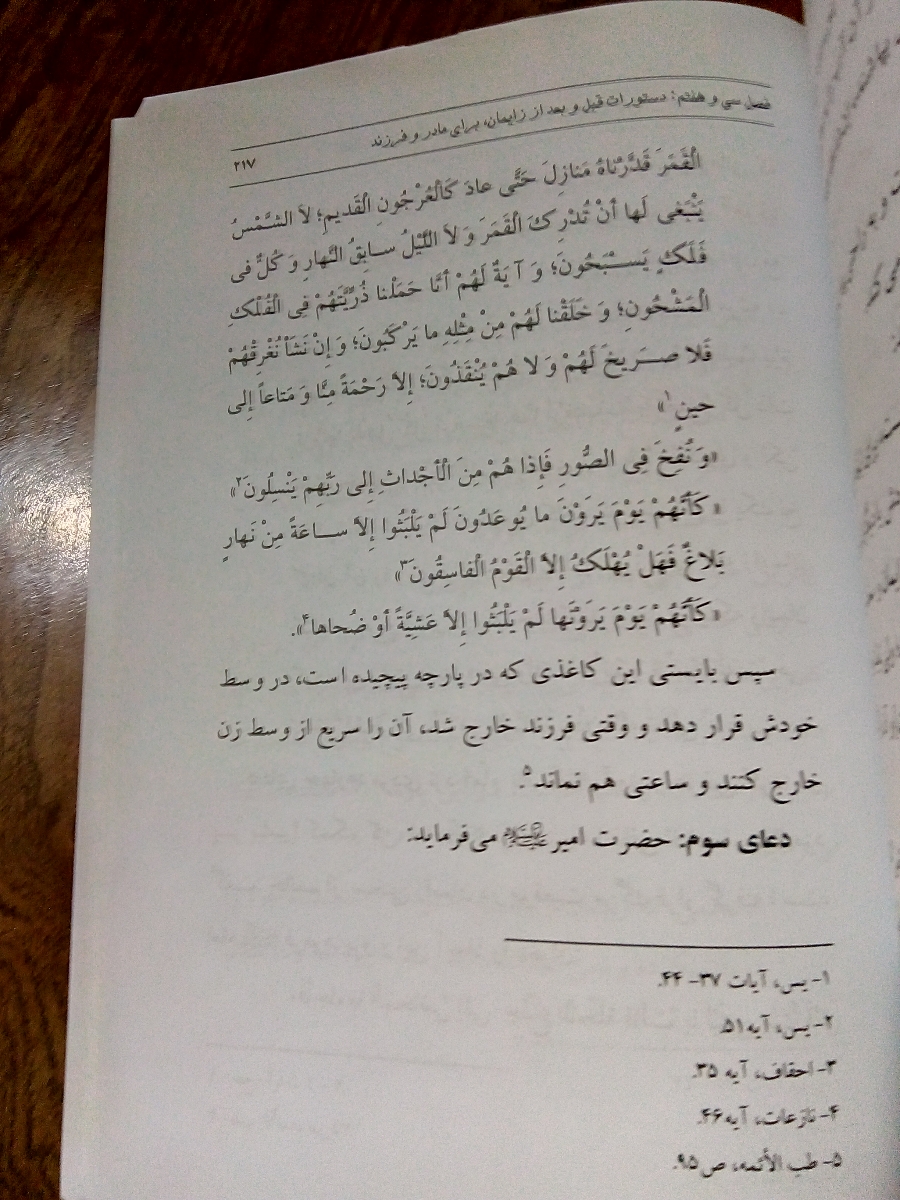 فصل سی و هفتم: دستورات قبل و بعد از زایمان، برای مادر و فرزند
۲۱۷
الْقَمَرَ قَدَّرْناهُ مَنازِلَ حَتَّى عادَ كَالْعُرْجُونِ الْقَديمِ؛ لاَ الشَّمْسُ
يَنْبَغى لَها أنْ تُدْرِكَ الْقَمَرَ وَ لاَ اللَّيْلُ سابِقُ النَّهارِ وَ كُلٌّ فى
فَلَكٍ يَسْبَحُونَ؛ وَ آيَةٌ لَهُمْ أنَّا حَمَلْنا ذُرِّيَّتَهُمْ فِى الْفُلْكِ
الْمَشْحُونِ؛ وَ خَلَقْنا لَهُمْ مِنْ مِثْلِهِ ما يَرْكَبُونَ؛ وَ إنْ نَشَأْ نُغْرِقْهُمْ
فَلا صَريخَ لَهُمْ وَ لا هُمْ يُنْقَذُونَ؛ إلاَّ رَحْمَةً مِنَّا وَ مَتاعاً إلى
حينٍ۱»
«وَ نُفِخَ فِى الصُّورِ فَإذا هُمْ مِنَ الْأجْداثِ إلى رَبِّهِمْ يَنْسِلُونَ۲»
«كَأنَّهُمْ يَوْمَ يَرَوْنَ ما يُوعَدُونَ لَمْ يَلْبَثُوا إلاَّ ساعَةً مِنْ نَهارٍ
بَلاغٌ فَهَلْ يُهْلَكُ إلاَّ الْقَوْمُ الْفاسِقُونَ۳»
«كَأنَّهُمْ يَوْمَ يَرَوْنَها لَمْ يَلْبَثُوا إلاَّ عَشِيَّةً أوْ ضُحاها۴».
سپس بایستی این کاغذی که در پارچه پیچیده است، در وسط
خودش قرار دهد و وقتی فرزند خارج شد، آن را سریع از وسط زن
خارج کنند و ساعتی هم نماند۵.
دعای سوم: حضرت امیر علیه‌السلام می‌فرماید:
۱- یس، آیات ۳۷- ۴۴.
۲- یس، آیه ۵۱.
۳- احقاف، آیه ۳۵.
۴- نازعات، آیه ۴۶.
۵- طب الأئمه، ص ۹۵.